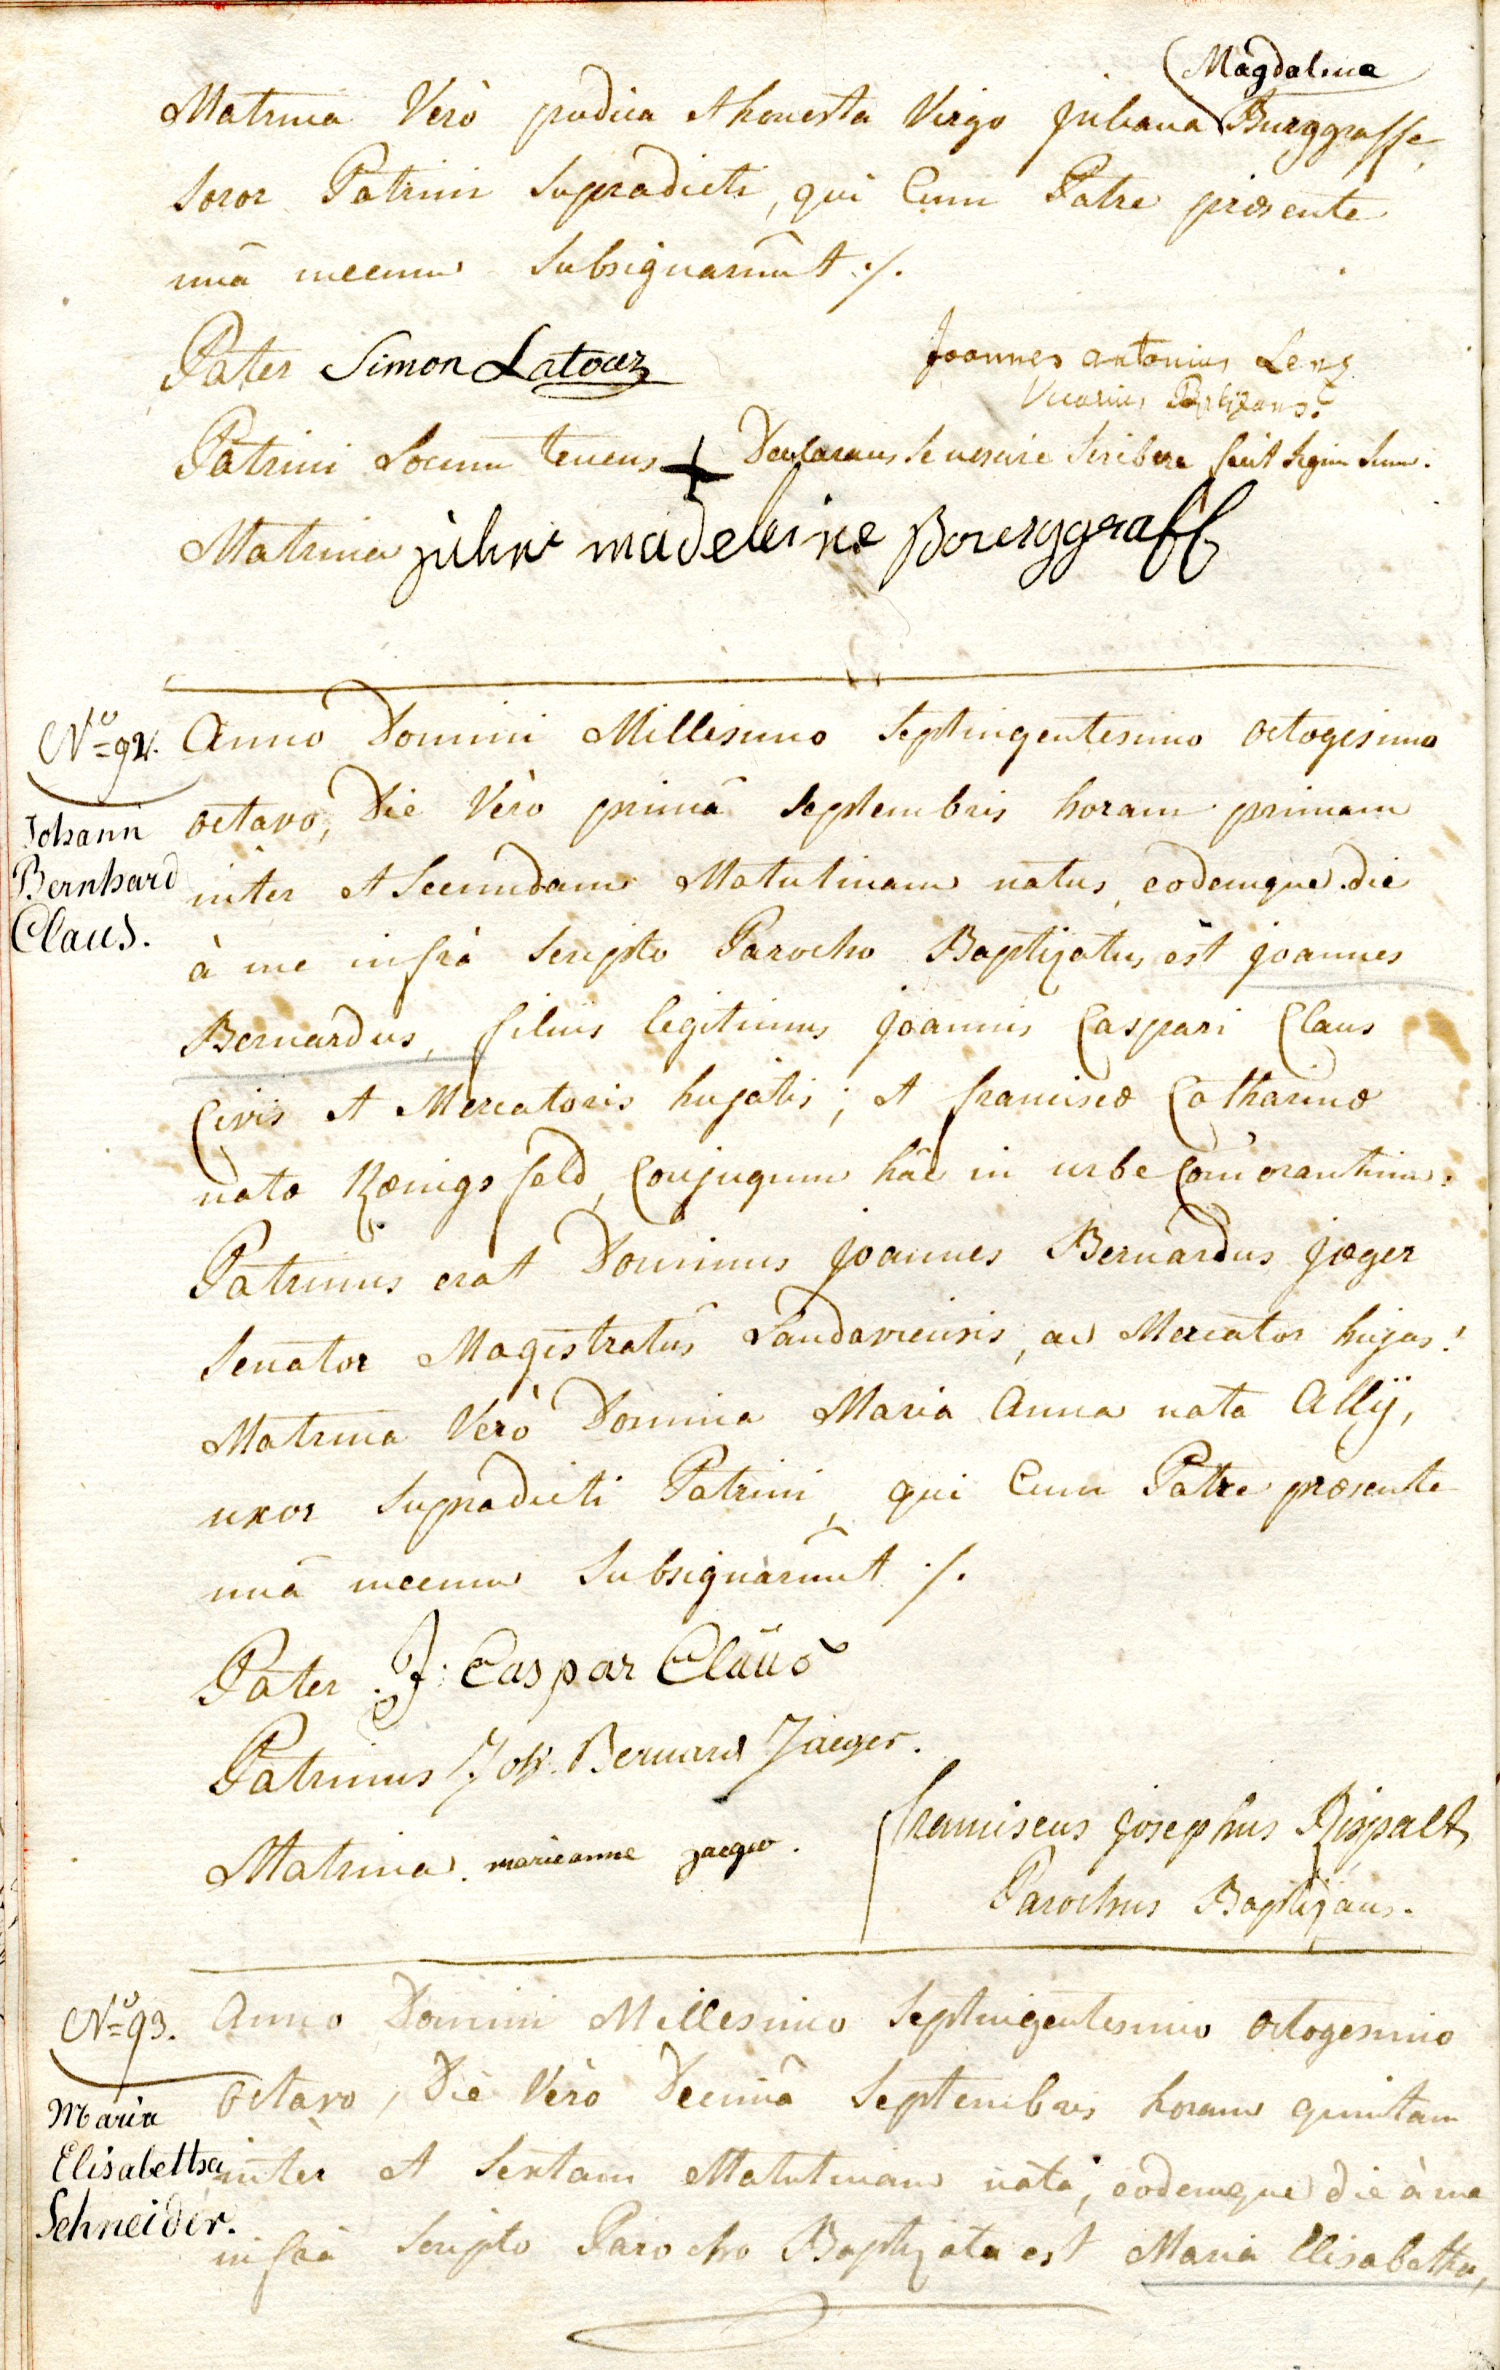 Magdalina
Matrina Verò pudica et honesta Virgo Juliana Burggraffe,
Soror Patrini supradicti, qui Cum Patre præsente
unā mecum Subsignarūnt ./.
Pater Simon Latour
Joannes antonius Lenz
Vicarius Baptizans.
Patrini Locum tenens + Declarans se nescire scribere fecit signum suum.
Matrina madeleine Bourggraff
Nº= 92.
Johann
Bernhard
Claus.
Anno Domini Millesimo Septingentesimo octogesimo
octavo, Die Vèro primâ Septembris horam primam
inter et Secundam Matutinam natus, eodemque die
à me infrà Scripto Parocho Baptizatus est Joannes
Bernardus, filius legitimus Joannis Caspari Claus
Civis et Mercatoris hujatis; et franciscæ Catharinæ
natæ Kœnigsfeld, Conjugum hâc in urbe Com̄orantium.
Patrinus erat Dominus Joannes Bernardus Jæger
Senator Magistratûs Landaviensis, ac Mercator hujas!
Matrina Verò Domina Maria Anna nata Allÿ,
uxor supradicti Patrini, qui Cum Patre præsente
unā mecum Subsignarūnt ./.
Pater J: Caspar Claus
Patrinus Joh. Bernard Jaeger.
Matrina. marieanne jaeger.
franciscus Josephus Rispalt
Parochus Baptizans.
Nº= 93.
Maria
Elisabetha
Schneider.
Anno Domini Millesimo Septingentesimo octogesimo
octavo, Die Vèro Decimâ Septembris horam quintam
inter et Sextam Matutinam nata, eodemque die à me
infrà Scripto Parocho Baptizata est Maria Elisabetha,